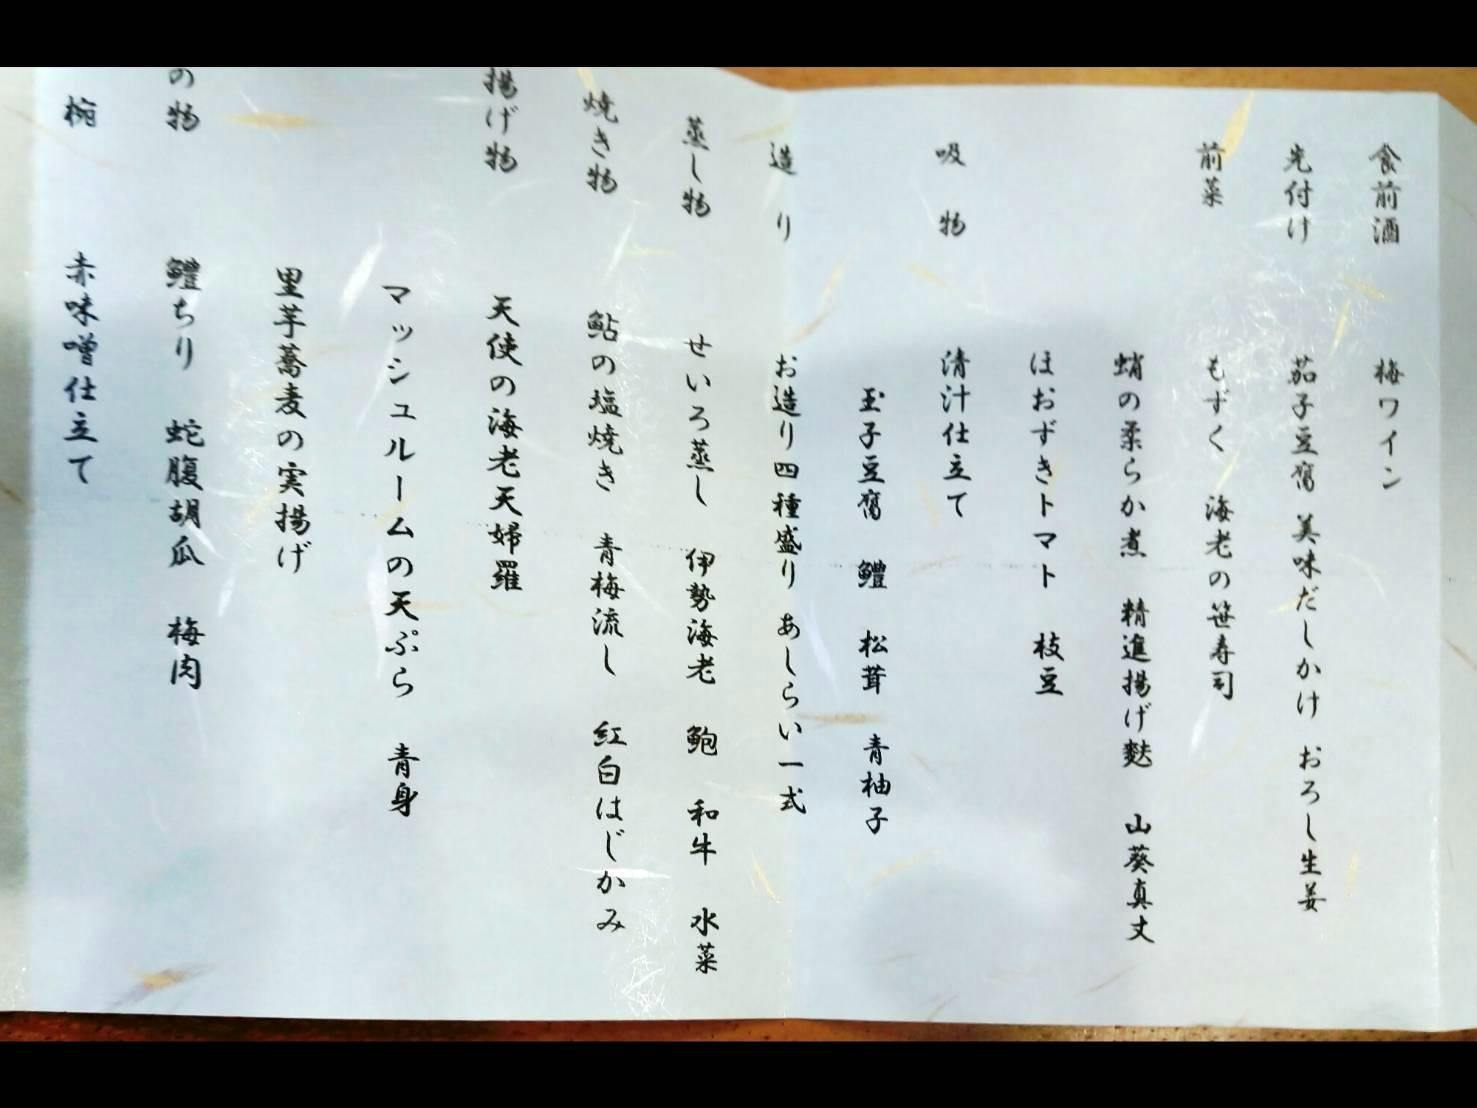 食前酒 梅ワイン
先付け 茄子豆腐 美味だしかけ おろし生姜
前菜 もずく 海老の笹寿司
蛸の柔らか煮 精進揚げ麩 山葵真丈
ほおずきトマト 枝豆
吸物 清汁仕立て
玉子豆腐 鱧 松茸 青柚子
造り お造り四種盛り あしらい一式
蒸し物 せいろ蒸し 伊勢海老 鮑 和牛 水菜
焼き物 鮎の塩焼き 青梅流し 紅白はじかみ
揚げ物 天使の海老天婦羅
マッシュルームの天ぷら 青身
里芋蕎麦の実揚げ
の物 鱧ちり 蛇腹胡瓜 梅肉
椀 赤味噌仕立て